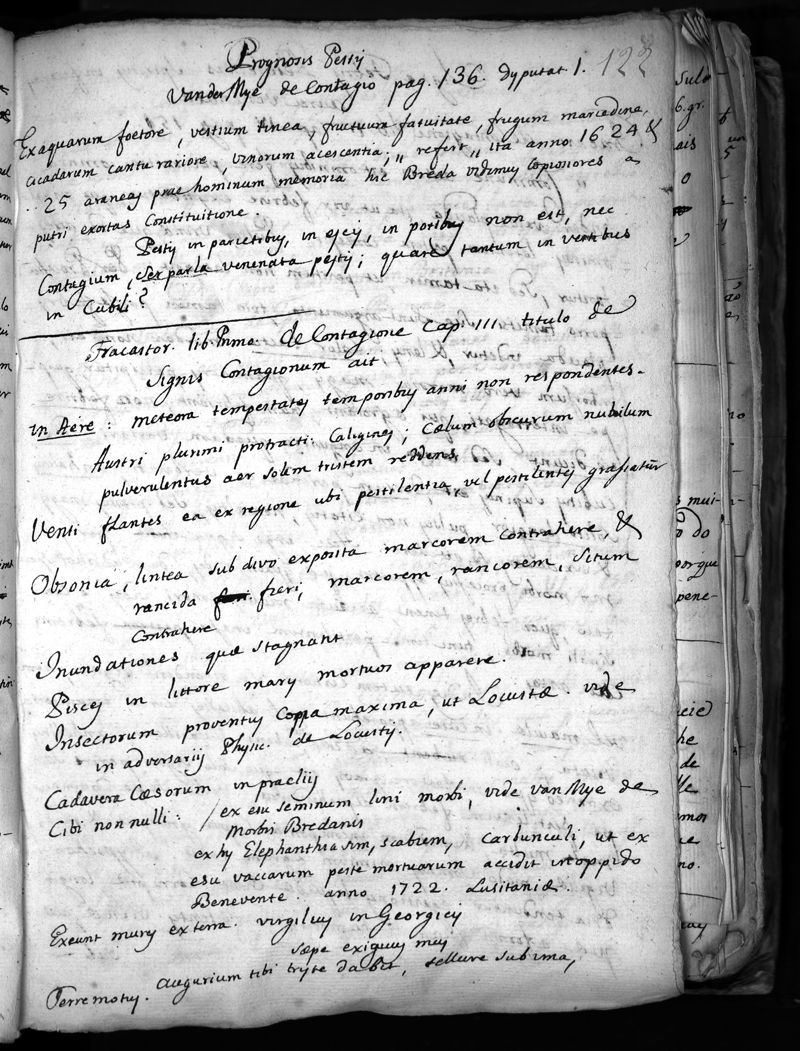 Prognosis Pestis
122
Van der Mye de Contagio pag. 136. dyputat 1.
Ex aquarum foetore, vestium tinea, fructuum fatuitate, frugum marcedine,
cicadarum cantu rariore, vinorum acescentia; „ refert „ ita anno 1624 &
.. 25 araneas prae hominum memoria hic Breda vidimus copiosiores a
putri exortas Constituitione.
Pestis in parietibus, in escis, in potibus non est, nec
Contagium, sex parla venenata pestis; quare tantum in vestibus
in Cubili?
Fracastor. lib. Primo. de Contagione Cap. III titulo de
Signis Contagionum ait
in Aere: meteora tempestates temporibus anni non respondentes.
Austri plurimi protracti: Caligines; Cælum obscurum nubilum
pulverulentus aer solem tristem reddens,
Venti flantes ea ex regione ubi pestilentia, vel pestilentes grassatur
Obsonia, lintea sub divo exposita marcorem contrahere, &
rancida fieri, marcorem, rancorem, situm
Contrahere
Inundationes quæ stagnant
Pisces in littore maris mortuos apparere.
Insectorum proventus Coppa maxima, ut Locustæ. vide
in adversariis Physic. de Locustis.
Cadavera Cæsorum in praeliis
Cibi non nulli: / ex esu seminum lini morbi, vide Van Mye de
Morbis Bredanis
ex his Elephanthiasim, scabiem, Carbunculi, ut ex
esu vaccarum peste mortuarum accidit in oppido
Benevente. anno 1722. Lusitaniæ.
Exeunt mures ex terra. Virgilius in Georgicis
sæpe exiguus mus
Augurium tibi triste dabit, tellure sub ima,
Terremotus.